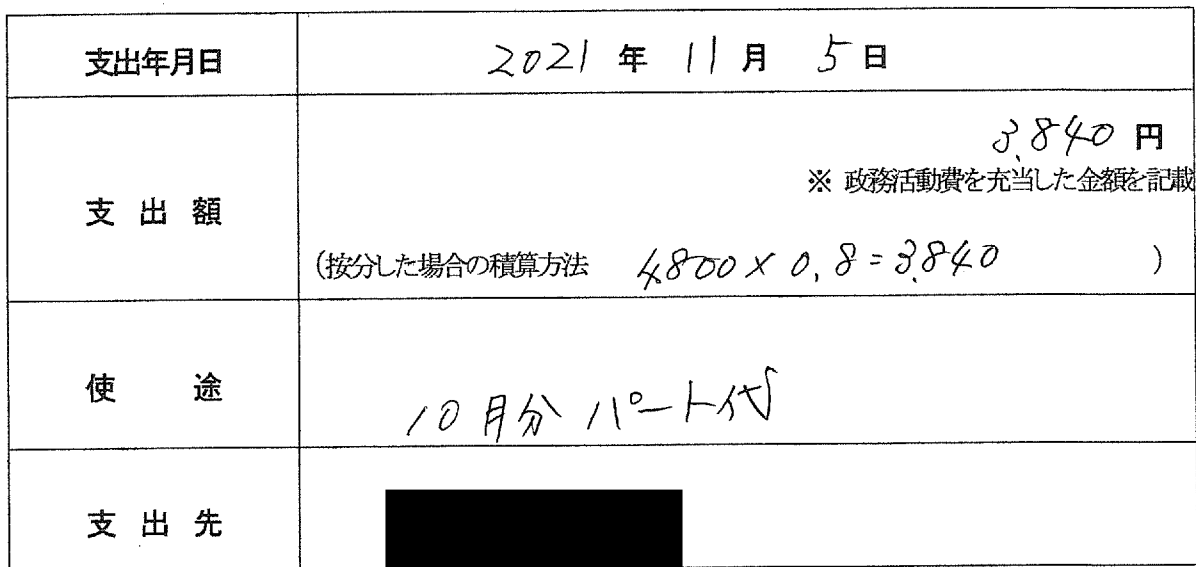 支出年月日 2021 年 11 月 5 日
3,840 円
※ 政務活動費を充当した金額を記載
支 出 額
(按分した場合の積算方法 4,800 × 0.8 = 3,840 )
使 途 10月分 パート代
支 出 先